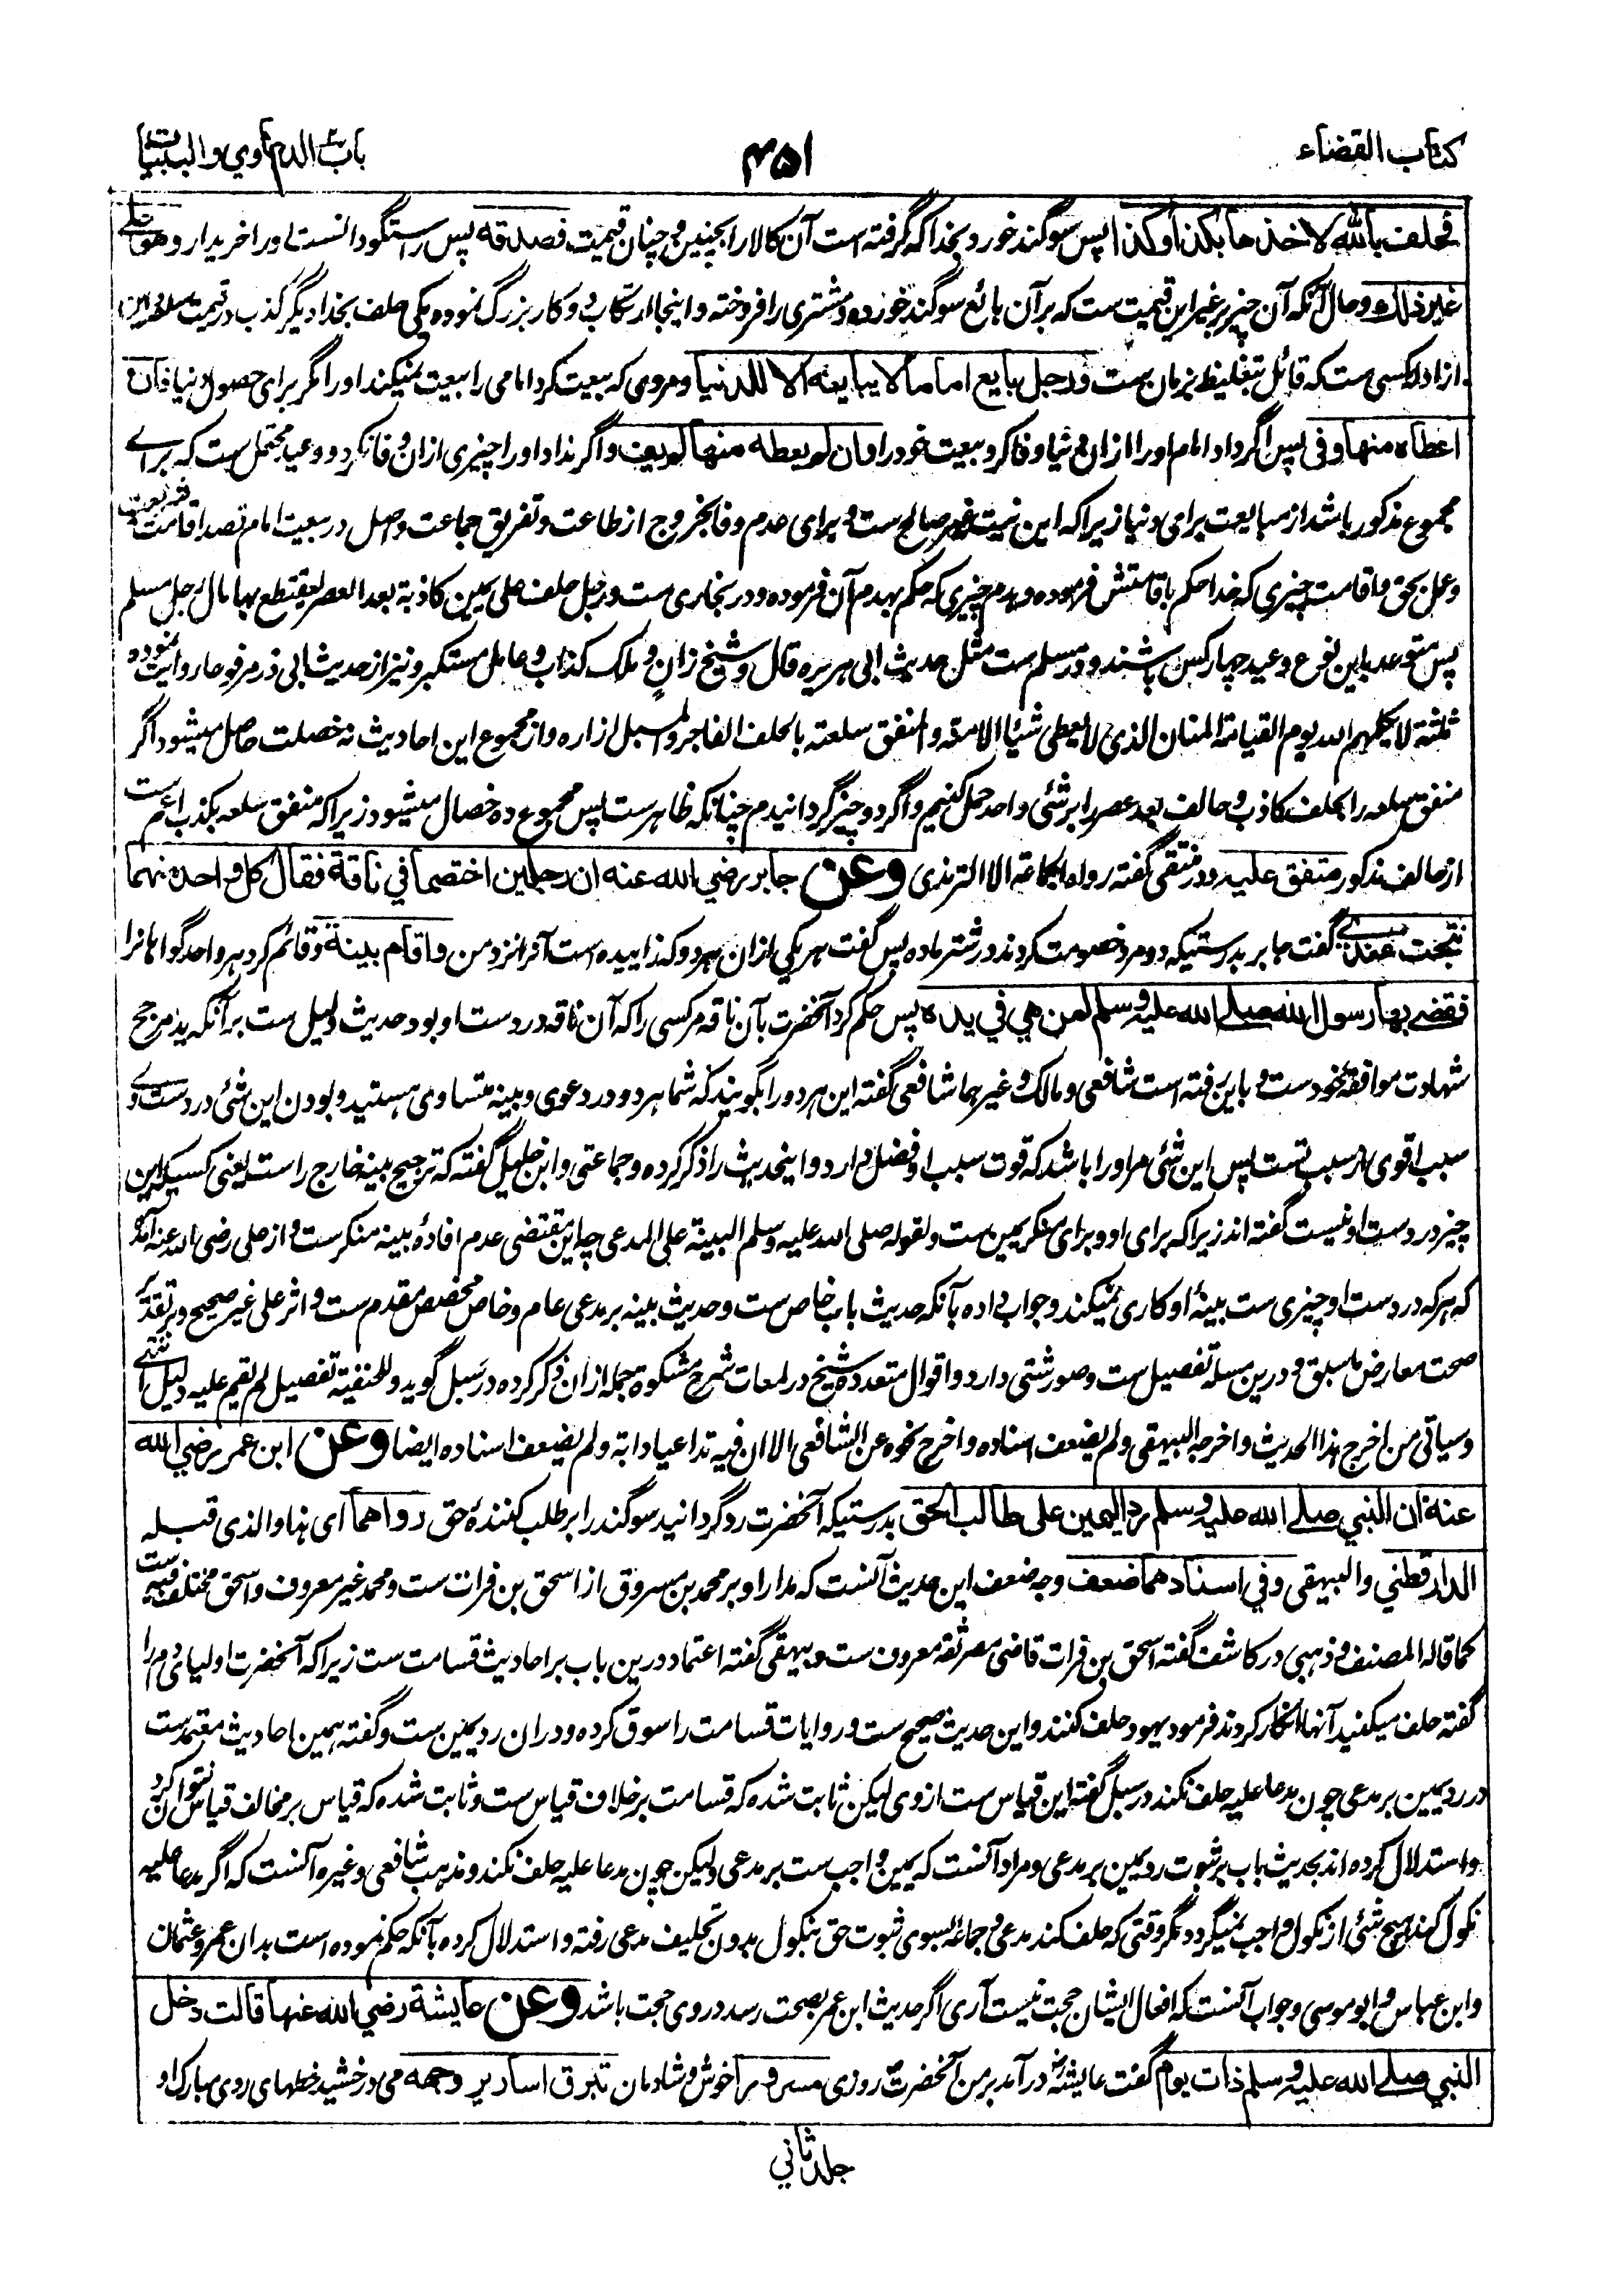 كتاب القضاء
۴۵۱
باب الدعاوي والبينات
فحلف بالله لاخذها بكذا وكذا پس سوگند خورد بخدا كه گرفته است آن كالا را بچنين و چنان قيمت فصدقه پس راستگو دانست او را خريدار وهو على
غير ذلك و حال آنكه آن چيز بر غير اين قيمت ست كه بر آن بائع سوگند خورده و مشتری را فروخته و اينجا ارتكاب دو كار بزرگ نموده يكی حلف بخدا ديگر كذب در قيمت سلعه و اين
از ادله كسی ست كه قائل بتغليظ بزمان ست ورجل بايع اماما لا يبايعه الا للدنيا و مردی كه بيعت كرد امامی را بيعت نميكند او را مگر برای حصول دنيا فان
اعطاه منها وفى پس اگر داد امام او را ازان دنيا وفا كرد بيعت خود را وان لم يعطه منها لم يف و اگر نداد او را چيزی ازان وفا نكرد و وعيد محتمل ست كه برای
مجموع مذكور باشد از مبايعت برای دنيا زيرا كه اين نيت غير صالح ست و برای عدم وفا بخروج از طاعت و تفريق جماعت و اصل در بيعت امام قصد اقامت شريعت
و عمل بحق و اقامت چيزی كه خدا حكم باقامتش فرموده و هدم چيزی كه حكم بهدم آن فرموده و در بخاری ست ورجل حلف على يمين كاذبة بعد العصر ليقتطع بها مال رجل مسلم
پس متوعد باين نوع وعيد چهار كس باشند و در مسلم ست مثل حديث ابی هريره قال وشيخ زانٍ وملك كذاب وعامل مستكبر و نيز از حديث ابی ذر مرفوعا روايت نموده
ثلثة لا يكلمهم الله يوم القيامة المنان الذي لا يعطي شيئا الا منة والمنفق سلعته بالحلف الفاجر والمسبل ازاره و از مجموع اين احاديث نه خصلت حاصل ميشود اگر
منفق سلعه را بحلف كاذب و حالف بعد عصر را بر شئ واحد حمل كنيم و اگر دو چيز گردانيدم چنانكه ظاهر ست پس مجموع ده خصال ميشود زيرا كه منفق سلعه بكذب اعم ست
از حالف مذكور متفق عليه و در منتقی گفته رواه الجماعة الا الترمذی وعن جابر رضي الله عنه ان رجلين اختصما في ناقة فقال كل واحد منهما
نتجت عندي گفت جابر بدرستيكه دو مرد خصومت كردند در شتر ماده پس گفت هر يكی ازان هر دو كه زاييده است آنرا نزد من واقام بينة و قائم كرد هر واحد گواهانرا
فقضى بها رسول الله صلى الله عليه وسلم لمن هي في يده پس حكم كرد آنحضرت بآن ناقه مر كسی را كه آن ناقه در دست او بود حديث دليل ست بر آنكه يد مرجح
شهادت موافقه خودست و باين رفته است شافعی و مالك و غيرهما شافعی گفته اين هر دو را بگويند كه شما هر دو در دعوی و بينه متساوی هستيد و بودن اين شئ در دست وی
سبب اقوی از سبب تست پس اين شئ مر او را باشد كه قوت سبب او فضل دارد و اينحديث را ذكر كرده و جماعتی و ابن حنبل گفته كه ترجيح بينه خارج راست يعنی كسيكه اين
چيز در دست او نيست گفته اند زيرا كه برای او و برای منكر يمين ست ولقوله صلى الله عليه وسلم البينة على المدعي چه اين مقتضی عدم افادۀ بينه منكرست و از علی رضی الله عنه آمده
كه هر كه در دست او چيزی ست بينۀ او كاری نميكند و جواب داده بآنكه حديث باب خاص ست و حديث بينه بر مدعی عام و خاص مخصص مقدم ست و اثر علی غير صحيح و بر تقدير
صحت معارض ما سبق و درين مسئله تفصيل ست و صور شتی دارد و اقوال متعدده شيخ در لمعات شرح مشكوة جمله ازان ذكر كرده در سبل گويد وللحنفية تفصيل لم يقم عليه دليل انتهى
وسيأتي من اخرج هذا الحديث واخرجه البيهقي ولم يضعف اسناده واخرج نحوه عن الشافعي الا ان فيه تداعيا دابة ولم يضعف اسناده ايضا وعن ابن عمر رضي الله
عنه ان النبي صلى الله عليه وسلم رد اليمين على طالب الحق بدرستيكه آنحضرت رد گردانيد سوگند را بر طلب كنندۀ حق رواهما ای هذا والذي قبله
الدارقطني والبيهقي وفي اسنادهما ضعف وجه ضعف اين حديث آنست كه مدار او بر محمد بن مسروق از اسحق بن فرات ست و محمد غير معروف و اسحق مختلف فيه ست
كما قاله المصنف و ذهبی در كاشف گفته اسحق بن فرات قاضی مصر ثقه معروف ست و بيهقی گفته اعتماد درين باب بر احاديث قسامت ست زيرا كه آنحضرت اوليای دم را
گفته حلف ميكنيد آنها انكار كردند فرمود يهود حلف كنند و اين حديث صحيح ست و روايات قسامت را سوق كرده و دران رد يمين ست و گفته همين احاديث معتمدست
در رد يمين بر مدعی چون مدعا عليه حلف نكند در سبل گفته اين قياس ست از وی ليكن ثابت شده كه قسامت بر خلاف قياس ست و ثابت شده كه قياس بر مخالف قياس نتوان كرد
و استدلال كرده اند بحديث باب بر ثبوت رد يمين بر مدعی و مراد آنست كه يمين واجب ست بر مدعی وليكن چون مدعا عليه حلف نكند و مذهب شافعی و غيره آنست كه اگر مدعا عليه
نكول كند هيچ شئ از نكول واجب نميگردد مگر وقتی كه حلف كند مدعی و جماعۀ بسوی ثبوت حق بنكول بدون تحليف مدعی رفته و استدلال كرده بآنكه حكم نموده است بدان عمر و عثمان
و ابن عباس و ابو موسی و جواب آنست كه افعال ايشان حجت نيست آری اگر حديث ابن عمر بصحت رسد در وی حجت باشد وعن عايشة رضي الله عنها قالت دخل
النبي صلى الله عليه وسلم ذات يوم گفت عايشه در آمد بر من آنحضرت روزی مسرورا خوش و شادمان تبرق اسارير وجهه می درخشيد خطهای روی مبارك او
جلد ثاني